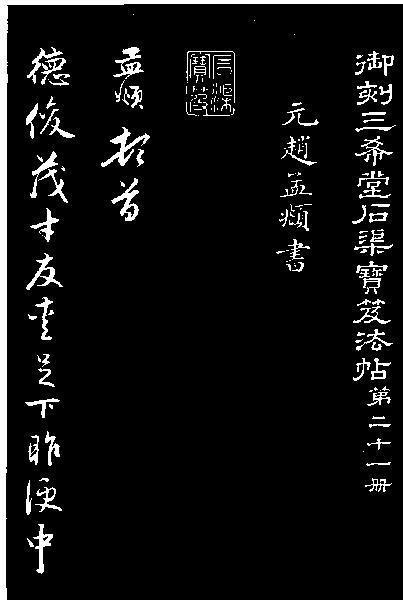 御刻三希堂石渠寶笈法帖第二十一册
元趙孟頫書
孟頫頓首
德俊茂才友愛足下昨便中